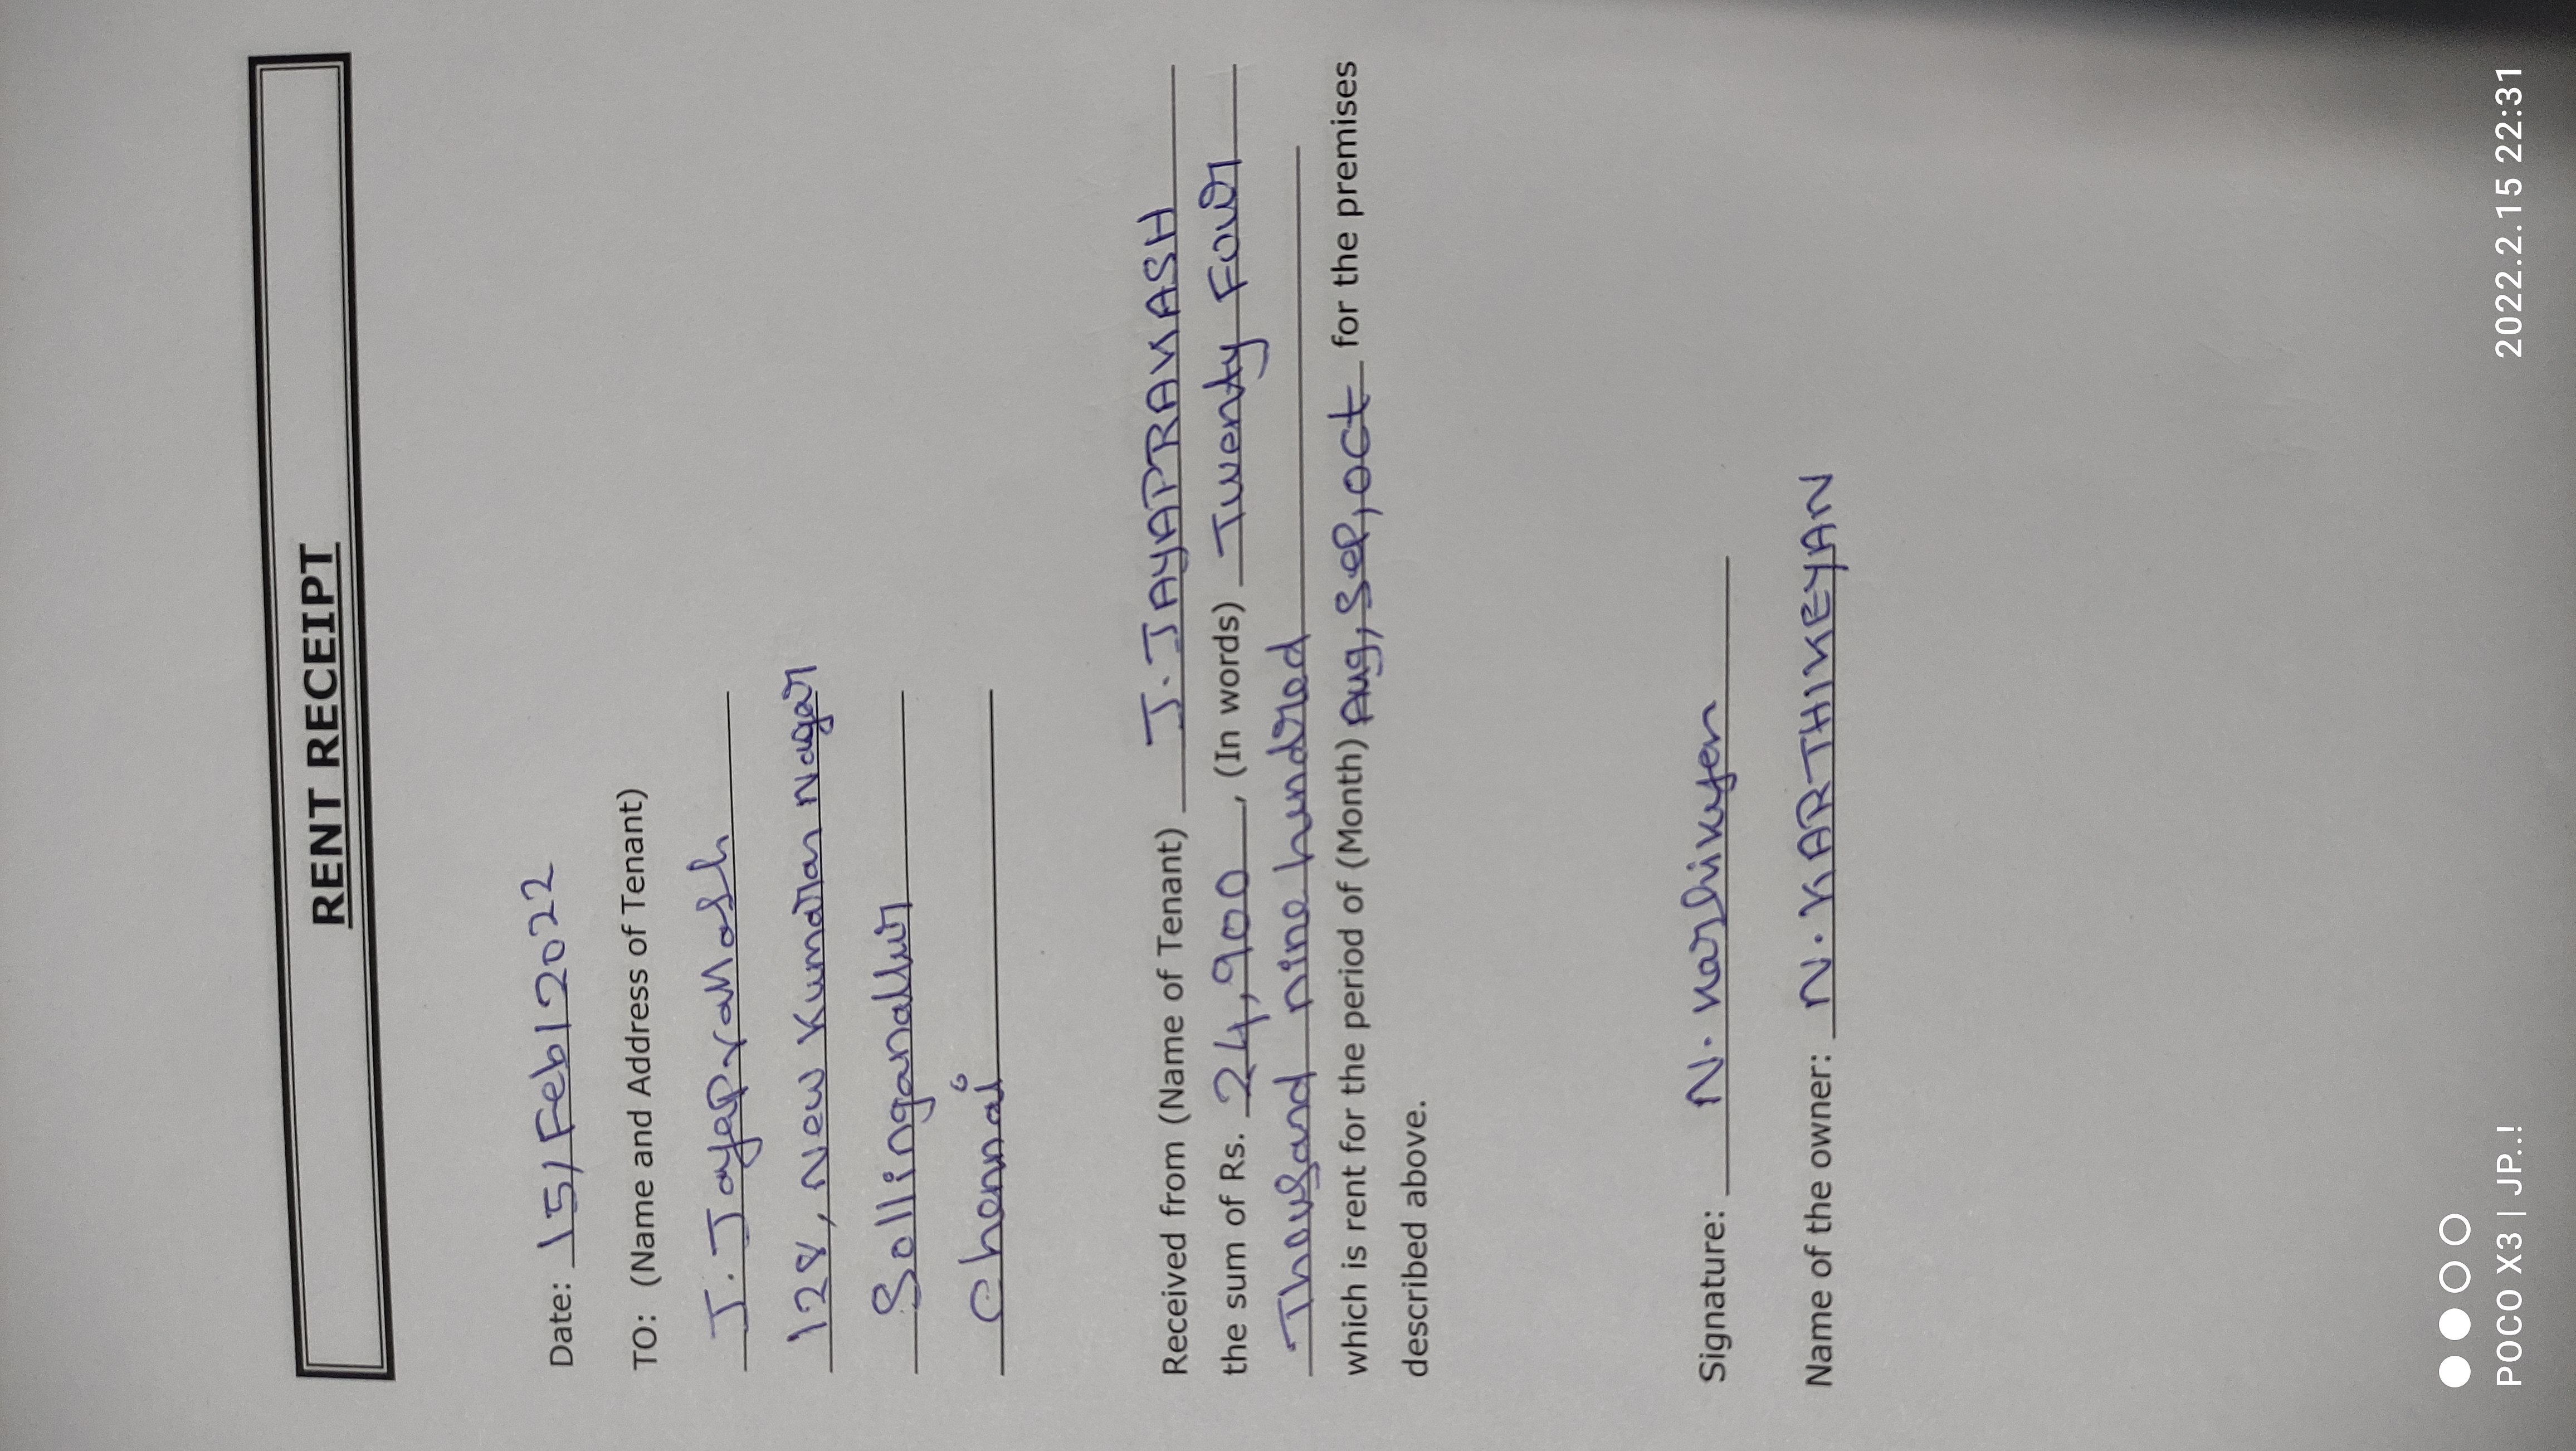 RENT RECEIPT
Date: 15/Feb/2022
TO: (Name and Address of Tenant)
J. JayaPrakash
128, New Kumaran Nagar
Sollinganallur
Chennai
Received from (Name of Tenant) J. JAYAPRAKASH
the sum of Rs. 24,900, (In words) Twenty Four
Thousand nine hundred
which is rent for the period of (Month) Aug, Sep, oct for the premises
described above.
Signature: N. Karthikeyan
Name of the owner: N. KARTHIKEYAN
POCO X3 | JP..!
2022.2.15 22:31